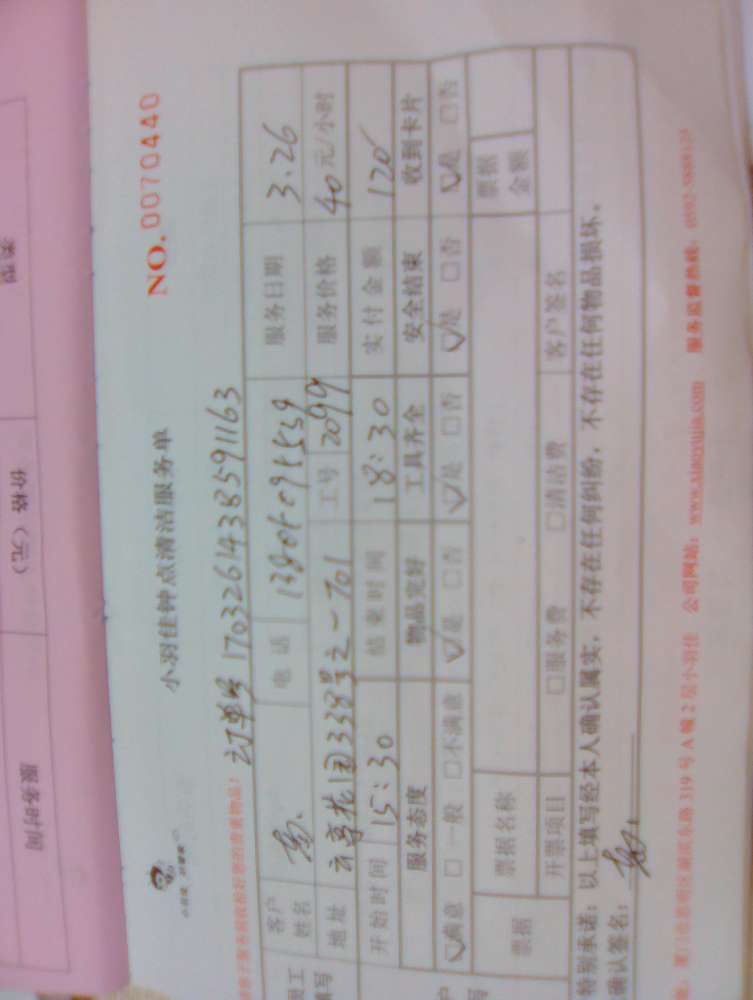 NO.0070440
小羽佳钟点清洁服务单
订单号 1703261438591163
客户姓名 电话 服务日期 3.26
地址 338号之一701 工号 2099 服务价格 40元/小时
开始时间 15:30 结束时间 18:30 实付金额 120
服务态度 物品完好 工具齐全 安全结束 收到卡片
☑满意 □一般 □不满意 ☑是 □否 ☑是 □否 ☑是 □否 ☑是 □否
票据 票据名称 票据金额
开票项目 □服务费 □清洁费 客户签名
特别承诺：以上填写经本人确认属实，不存在任何纠纷，不存在任何物品损坏。
确认签名：
319号A幢2层小羽佳 公司网站：www.xiaoyujia.com 服务监督热线：
价格（元）
服务时间